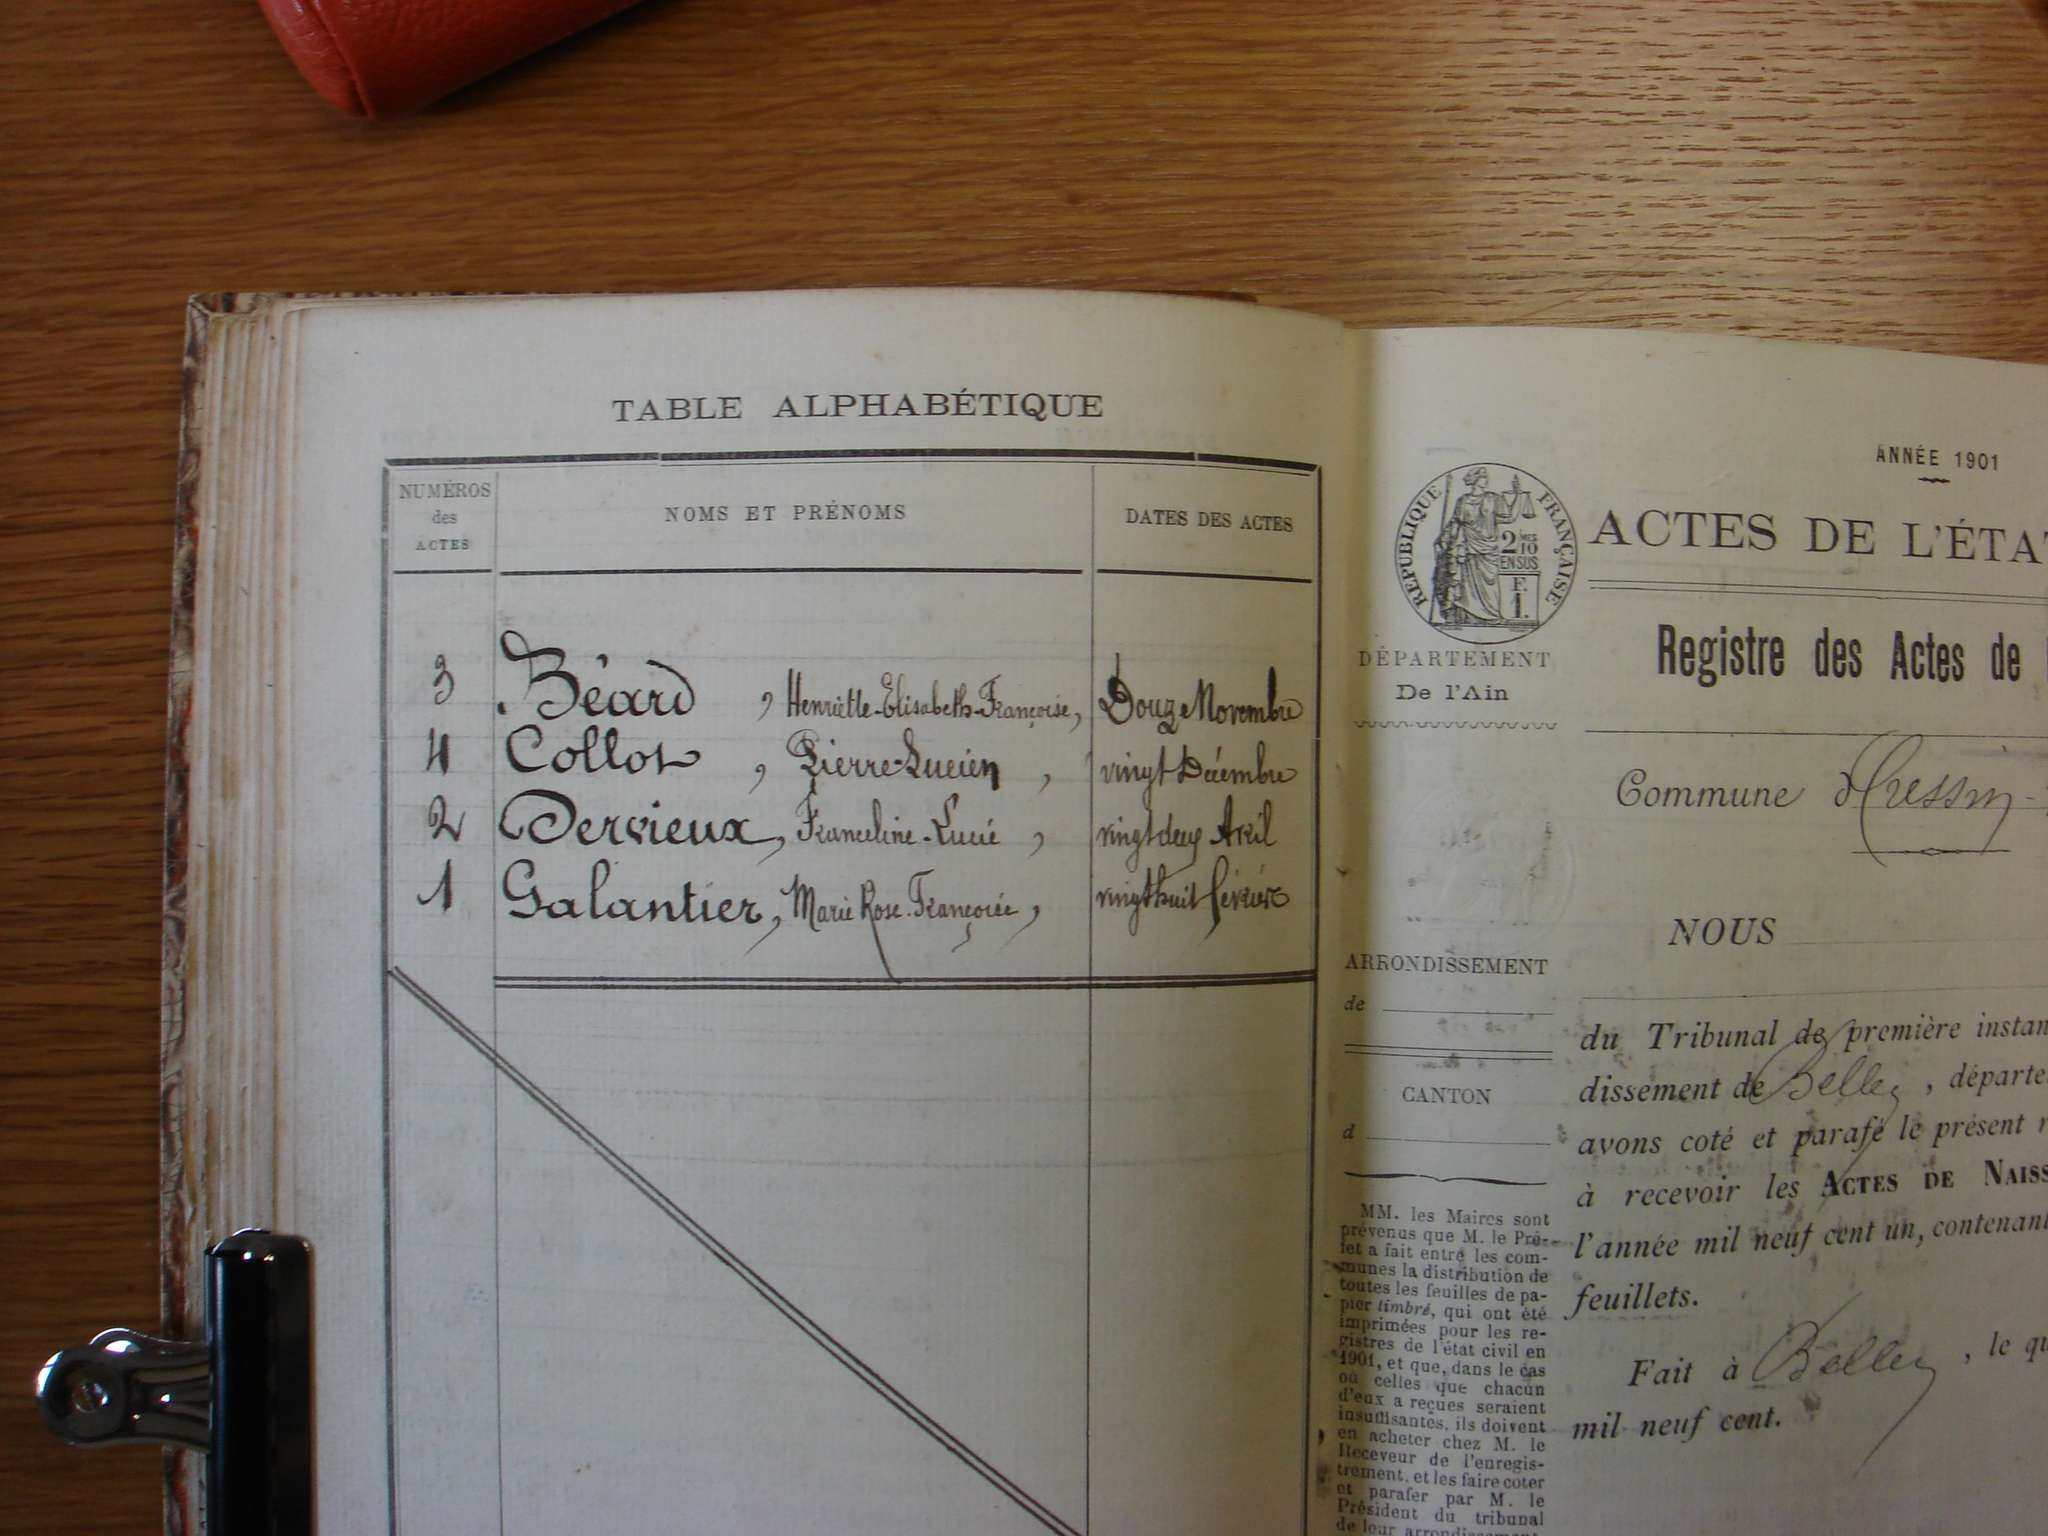 TABLE ALPHABÉTIQUE
NUMÉROS
des
ACTES
NOMS ET PRÉNOMS
DATES DES ACTES
3 Béard, Henriette-Elisabeth-Françoise, Douze Novembre
4 Collot, Pierre-Lucien, vingt Décembre
2 Dervieux, Franceline-Lucie, vingt deux Avril
1 Galantier, Marie Rose Françoise, vingt huit février
ANNÉE 1901
RÉPUBLIQUE FRANÇAISE
2 MES
10
EN SUS
F.
1.
ACTES DE L'ÉTAT
DÉPARTEMENT
De l'Ain
Registre des Actes de
Commune d Cressin-
NOUS
ARRONDISSEMENT
de
du Tribunal de première instan
dissement de Belley, départe
CANTON
avons coté et parafé le présent r
d
à recevoir les ACTES DE NAISS
l'année mil neuf cent un, contenant
feuillets.
Fait à Belley, le qu
mil neuf cent.
MM. les Maires sont
prévenus que M. le Pré-
fet a fait entre les com-
munes la distribution de
toutes les feuilles de pa-
pier timbré, qui ont été
imprimées pour les re-
gistres de l'état civil en
1901, et que, dans le cas
où celles que chacun
d'eux a reçues seraient
insuffisantes, ils doivent
en acheter chez M. le
Receveur de l'enregis-
trement, et les faire coter
et parafer par M. le
Président du tribunal
de leur arrondissement